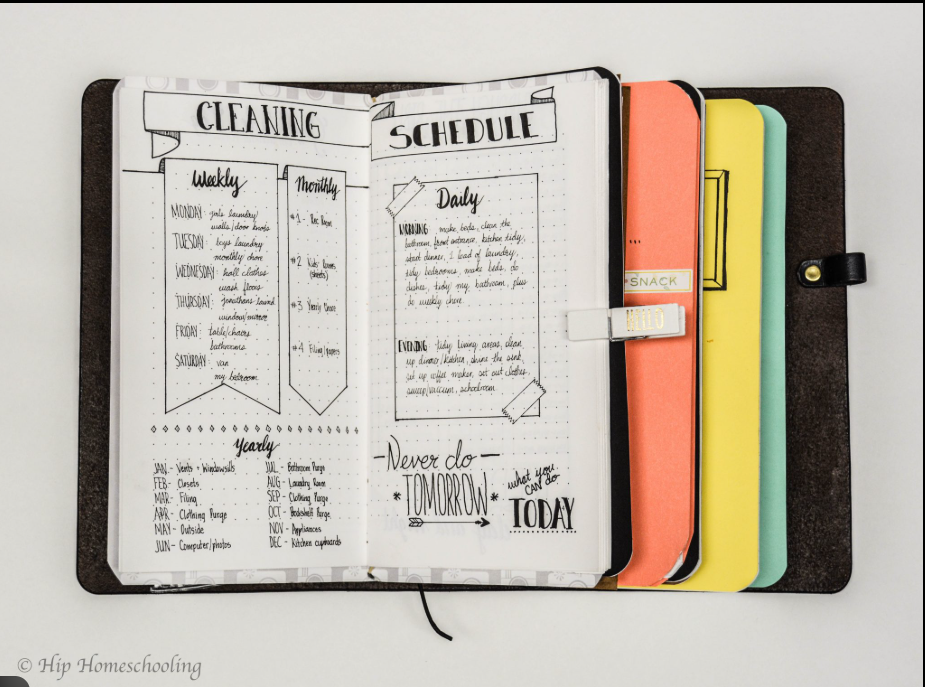 CLEANING
SCHEDULE
Weekly
MONDAY: girls laundry/
walls/door knobs
TUESDAY: boys laundry
monthly chore
WEDNESDAY: hall clothes
wash floors
THURSDAY: Jonathans laund
window/mirror
FRIDAY: table/chairs
bathrooms
SATURDAY: van
my bedroom
Monthly
#1 - Rec Room
#2 Kids' Rooms
(sheets)
#3 Yearly Chore
#4 Filing/papers
Yearly
JAN - Vents + Windowsills
FEB - Closets
MAR - Filing
APR - Clothing Purge
MAY - Outside
JUN - Computer/photos
JUL - Bathroom Purge
AUG - Laundry Room
SEP - Clothing Purge
OCT - Bookshelf Purge
NOV - Appliances
DEC - Kitchen cupboards
Daily
MORNING: make beds, clean the
bathroom, front entrance, kitchen tidy,
start dinner, 1 load of laundry,
tidy bedrooms, make beds, do
dishes, tidy my bathroom, plus
do weekly chore.
EVENING - tidy living areas, clean
up dinner/kitchen, shine the sink,
set up coffee maker, set out clothes,
sweep/vacuum, schoolroom.
Never do
TOMORROW
what you
can do
TODAY
SNACK
HELLO
© Hip Homeschooling